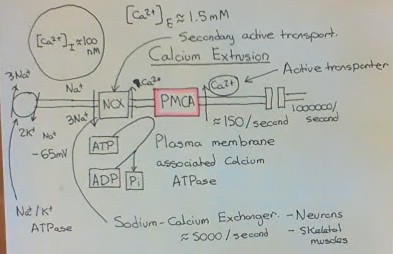 [Ca²⁺]E ≈ 1.5mM
[Ca²⁺]I ≈ 100
nM
Secondary active transport.
Calcium Extrusion
Active transporter
3Na⁺
Na⁺
NCX
Ca²⁺
PMCA
Ca²⁺
1000000/
second
2K⁺
Na⁺
3Na⁺
≈150/second
-65mV
ATP
Plasma membrane
associated Calcium
ATPase
ADP
Pi
Na⁺/K⁺
ATPase
Sodium-Calcium Exchanger.
≈ 5000/second
- Neurons
- Skeletal
muscles